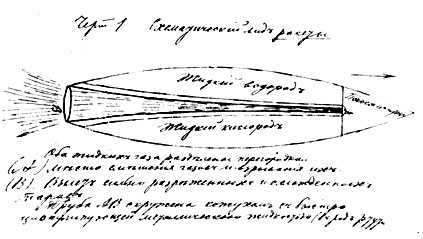 Черт 1 Схематический видъ ракеты
Жидкий водородъ
Жидкий кислородъ
Оба жидкихъ газа разделены перегородкой.
(А) Место смешения газовъ и взрывания ихъ.
(В) Выходъ сильно разреженныхъ и охлажденныхъ
паровъ
Труба АВ окружена кожухомъ съ быстро
циркулирующей металлической жидкостью